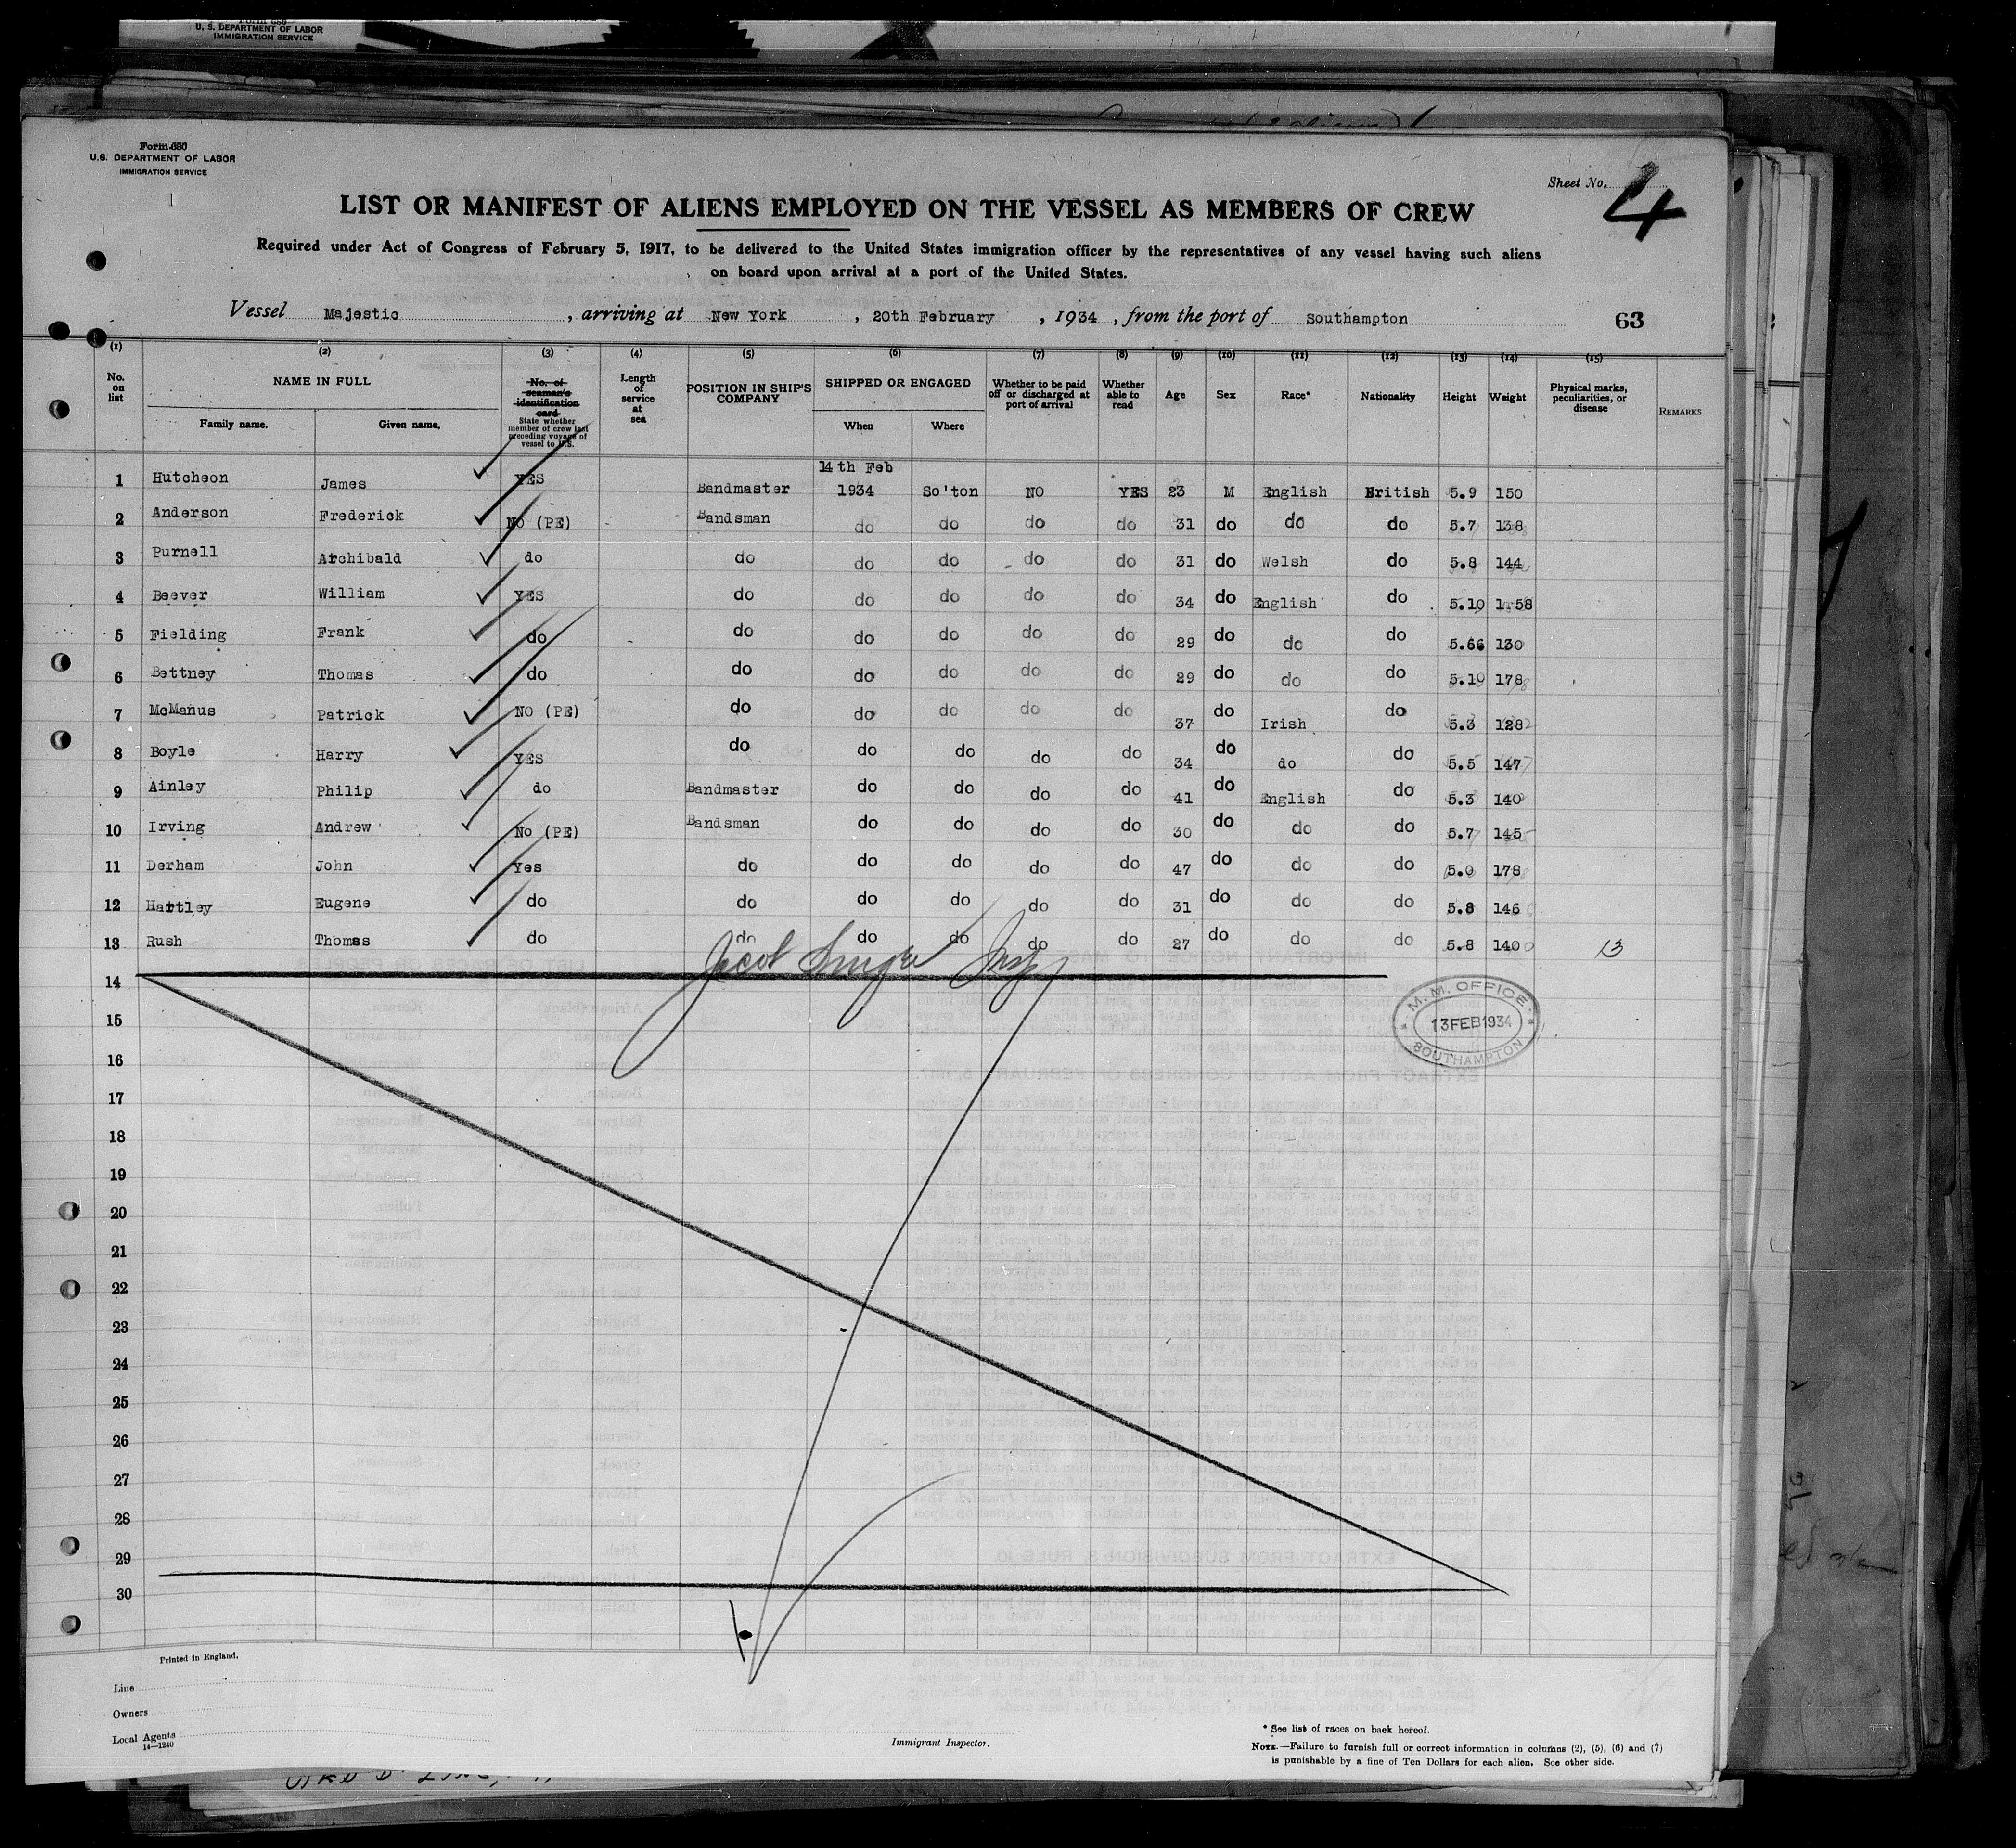 Form 680
U. S. DEPARTMENT OF LABOR
IMMIGRATION SERVICE
Form 680
U.S. DEPARTMENT OF LABOR
IMMIGRATION SERVICE
Sheet No. 4
LIST OR MANIFEST OF ALIENS EMPLOYED ON THE VESSEL AS MEMBERS OF CREW
Required under Act of Congress of February 5, 1917, to be delivered to the United States immigration officer by the representatives of any vessel having such aliens
on board upon arrival at a port of the United States.
Vessel Majestic, arriving at New York, 20th February, 1934, from the port of Southampton 63
(1) (2) (3) (4) (5) (6) (7) (8) (9) (10) (11) (12) (13) (14) (15)
No. on list
NAME IN FULL
Family name. Given name.
No. of seaman's identification card
State whether member of crew last preceding voyage of vessel to U.S.
Length of service at sea
POSITION IN SHIP'S COMPANY
SHIPPED OR ENGAGED
When Where
Whether to be paid off or discharged at port of arrival
Whether able to read
Age
Sex
Race*
Nationality
Height
Weight
Physical marks, peculiarities, or disease
REMARKS
14th Feb
1 Hutcheon James YES Bandmaster 1934 So'ton NO YES 23 M English British 5.9 150
2 Anderson Frederick NO (PE) Bandsman do do do do 31 do do do 5.7 138
3 Purnell Archibald do do do do do do 31 do Welsh do 5.8 144
4 Beever William YES do do do do do 34 do English do 5.10 158
5 Fielding Frank do do do do do do 29 do do do 5.66 130
6 Bettney Thomas do do do do do do 29 do do do 5.10 178
7 McManus Patrick NO (PE) do do do do do 37 do Irish do 5.3 128
8 Boyle Harry YES do do do do do 34 do do do 5.5 147
9 Ainley Philip do Bandmaster do do do do 41 do English do 5.3 140
10 Irving Andrew No (PE) Bandsman do do do do 30 do do do 5.7 145
11 Derham John Yes do do do do do 47 do do do 5.0 178
12 Hartley Eugene do do do do do do 31 do do do 5.8 146
13 Rush Thomas do do do do do do 27 do do do 5.8 140 13
14
15
16
17
18
19
20
21
22
23
24
25
26
27
28
29
30
M. M. OFFICE
13 FEB 1934
SOUTHAMPTON
Printed in England.
Line
Owners
Local Agents
14—1240
Immigrant Inspector.
* See list of races on back hereof.
NOTE.—Failure to furnish full or correct information in columns (2), (5), (6) and (7)
is punishable by a fine of Ten Dollars for each alien. See other side.